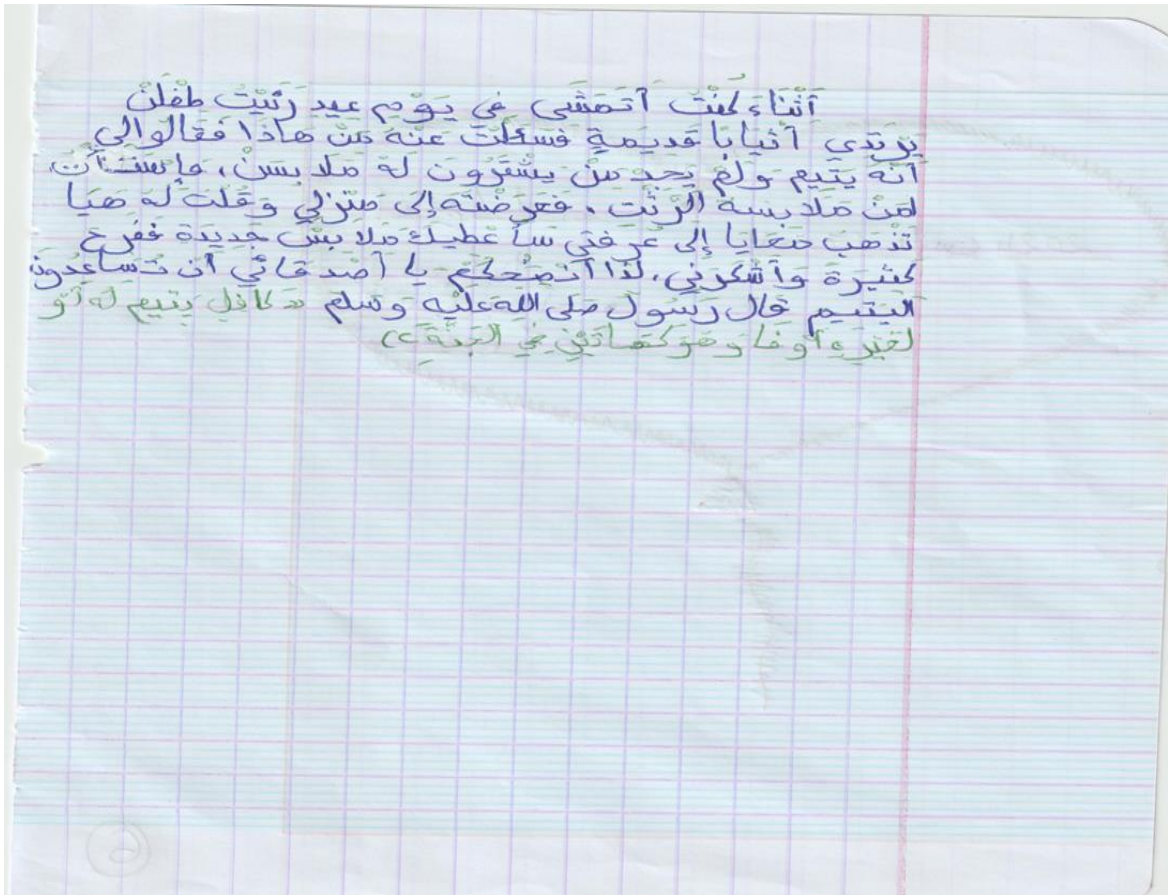 أَثْنَاءَ كُنْتُ أَتَمَشَّى فِي يَوْمِ عِيدٍ رَئَيْتُ طِفْلَنْ
يَرْتَدِي أَثْيَابًا قَدِيمَةٍ فَسَئَلْتُ عَنْهُ مَنْ هَاذَا فَقَالُوالِي
أَنَّهُ يَتِيم وَلَمْ يَجِد مَنْ يَشْتَرُونَ لَهُ مَلَابِسَنْ،
لَمَنْ مَلَابِسَهُ الرَّثَّت، فَعَرَضْتُهُ إِلَى مَنْزِلِي وَقُلْتُ لَهُ هَيَا
تَذْهَب مَعَايَا إِلَى غُرْفَتِي سَأُعْطِيكَ مَلَابِسَ جَدِيدَة فَفَرِحَ
كَثِيرَةً وَأَشْكَرَنِي، لَذَا أَنْصَحُكُم يَا أَصْدِقَائِي أَنْ تُسَاعِدُونَ
الْيَتِيم قَالَ رَسُولَ صلى الله عَلَيْهِ وَسَلم «كَافِل يَتِيم لَهُ أَوْ
لغَيْرِهِ أَوفَا وَهُوَ كَهَاتَيْنِ فِي الْجَنَّةِ»